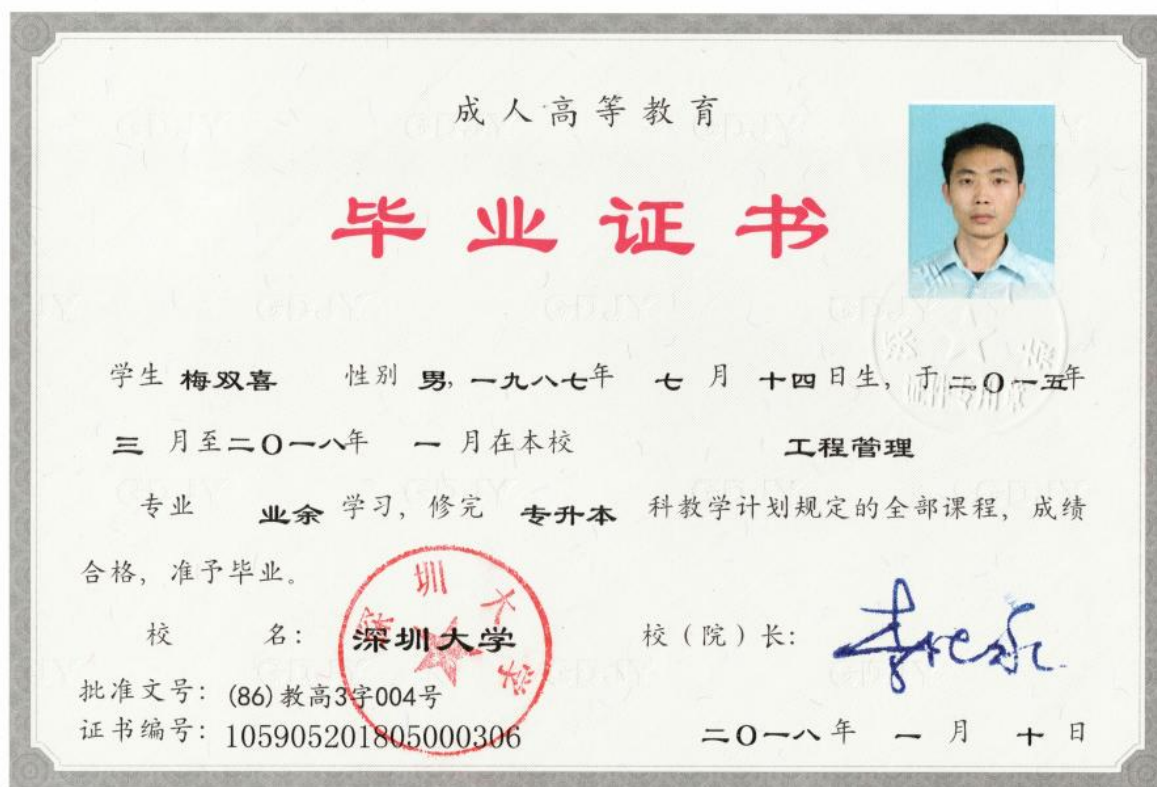 成人高等教育
毕业证书
学生 梅双喜 性别 男, 一九八七年 七 月 十四日生, 于二〇一五年
三 月至二〇一八年 一 月在本校 工程管理
专业 业余 学习, 修完 专升本 科教学计划规定的全部课程, 成绩
合格, 准予毕业。
校 名: 深圳大学 校(院)长:
深圳大学
批准文号: (86)教高3字004号
证书编号: 105905201805000306 二〇一八年 一 月 十 日
GDJY
证件专用章